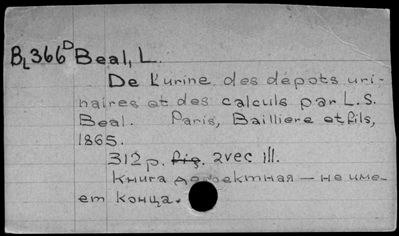 BL366D Beal, L.
De l'urine des dépots uri-
naires et des calculs par L.S.
Beal. Paris, Bailliere et fils,
1865.
312 p. fig. avec ill.
Книга дефектная — не име-
ет конца.